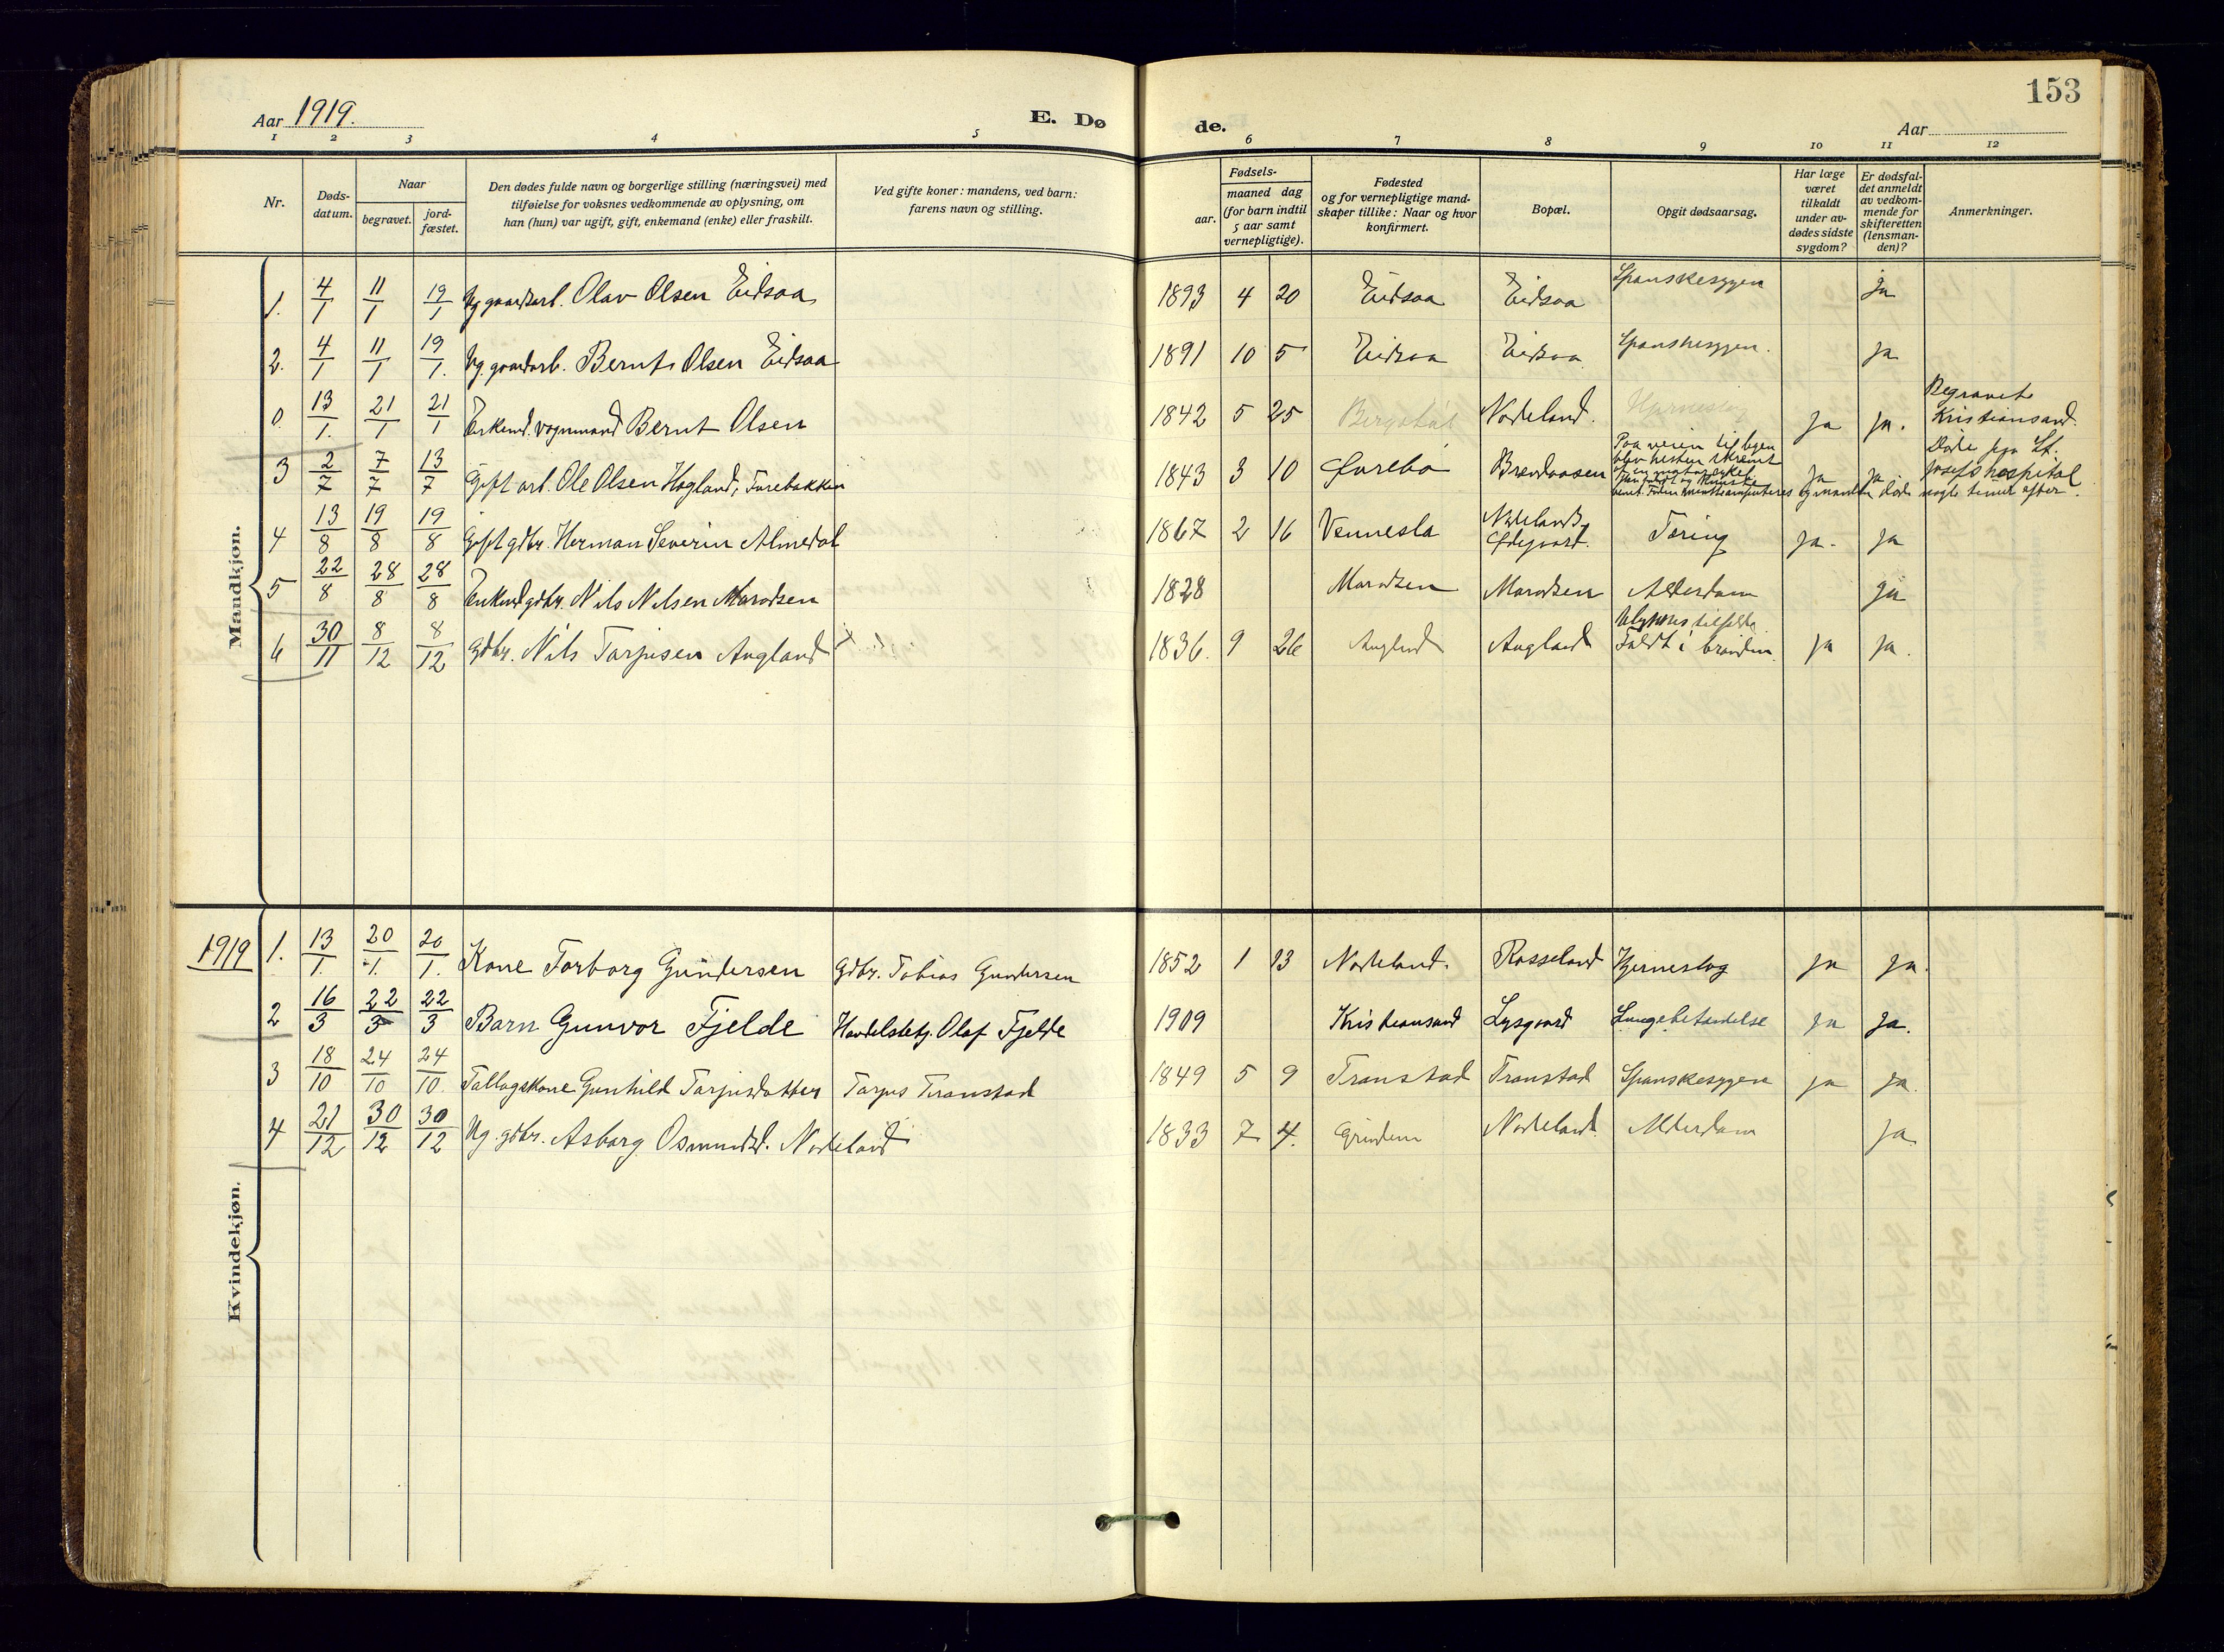 153
Aar 1919.
E. Dø
de.
Aar
1 2 3 4 5 6 7 8 9 10 11 12
Nr.
Døds-
datum.
Naar
begravet.
jord-
fæstet.
Den dødes fulde navn og borgerlige stilling (næringsvei) med
tilføielse for voksnes vedkommende av oplysning, om
han (hun) var ugift, gift, enkemand (enke) eller fraskilt.
Ved gifte koner: mandens, ved barn:
farens navn og stilling.
Fødsels-
aar.
maaned dag
(for barn indtil
5 aar samt
vernepligtige).
Fødested
og for vernepligtige mand-
skaper tillike: Naar og hvor
konfirmert.
Bopæl.
Opgit dødsaarsag.
Har læge
været
tilkaldt
under av-
dødes sidste
sygdom?
Er dødsfal-
det anmeldt
av vedkom-
mende for
skifteretten
(lensman-
den)?
Anmerkninger.
Mandkjøn.
1. 4/1 11/1 19/1 Ug gaardarb. Olav Olsen Eidsaa 1893 4 20 Eidsaa Eidsaa Spanskesygen ja
2. 4/1 11/1 19/1. Ug. gaardarb. Bernt Olsen Eidsaa 1891 10 5 Eidsaa Eidsaa Spanskesygen. ja
0. 13/1. 21/1 21/1 Enkemd. vognmand Bernt Olsen 1842 5 25 Nodeland. ja ja. Begravet i
Kristiansand.
3 2/7 7/7 13/7 Gift arb. Ole Olsen Hagland, Furebakken 1843 3 10 Øvrebø Brendaasen Paa veien til byen
blev hesten skræmt
af en motorcykel
ja ja Døde paa St.
Josefs hospital
nogle timer efter.
4 13/8 19/8 19/8 Gift gdbr. Herman Severin Almedal 1867 2 16 Vennesla Nodeland,
Ødegaard. Tæring ja. ja
5 22/8 28/8 28/8 Enkemd gdbr. Nils Nilsen Marodsen 1828 Marodsen Marodsen Alderdom ja
6 30/11 8/12 8/12 Gdbr. Nils Tarjesen Augland 1836. 9 26 Augland Augland Ulykkestilfælde.
Faldt i brønden. ja ja.
Kvindekjøn.
1919 1. 13/1. 20/1. 20/1. Kone Torborg Gundersen Gdbr. Tobias Gundersen 1852 1 13 Nodeland. Rosseland Hjerneslag ja ja.
2 16/3 22/3 22/3 Barn Gunvor Fjelde Handelsbetj. Olaf Fjelde 1909 Kristiansand Lysgaard Lungebetændelse ja ja.
3 18/10 24/10 24/10. Føllagskone Gunhild Tarjesdatter Tarjes Transtad 1849 5 9 Transtad Transtad Spanskesygen ja ja.
4 21/12 30/12 30/12 Ug. gdbr. Asborg Osmundsd. Nodeland 1833 7 4. Grindem Nodeland. Alderdom ja.